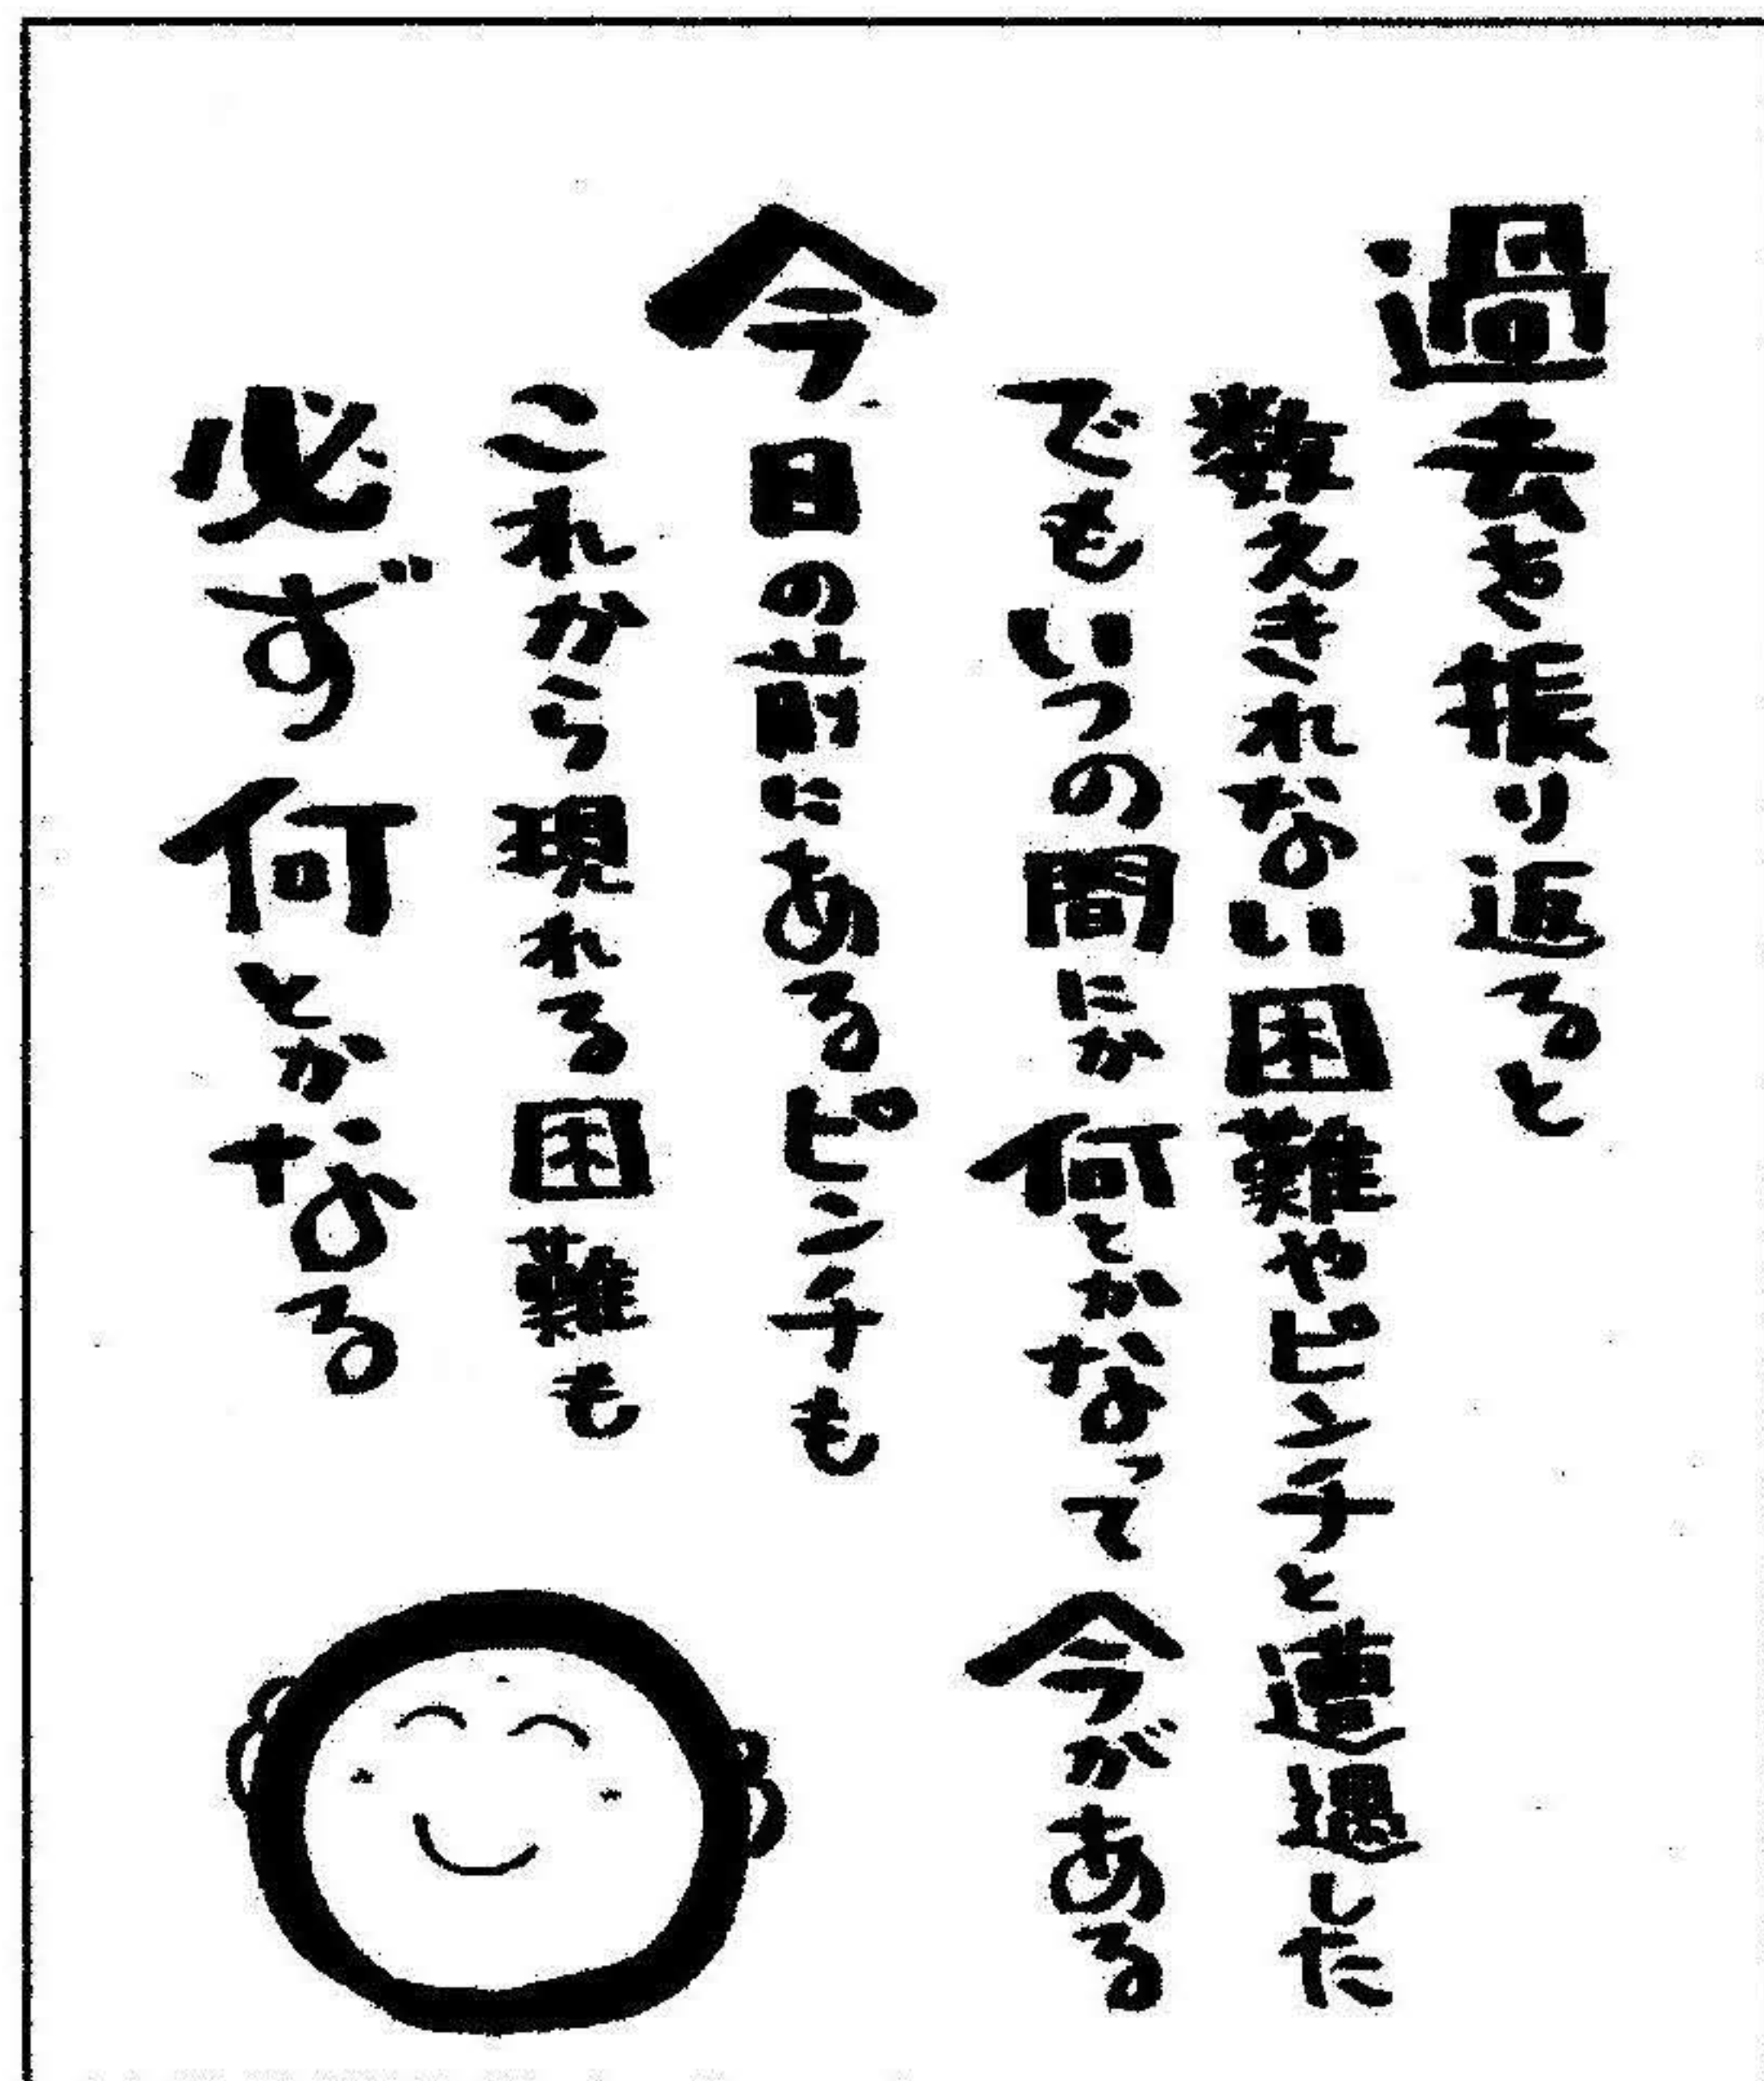 過去を振り返ると
数えきれない困難やピンチと遭遇した
でもいつの間にか何とかなって今がある
今日の前にあるピンチも
これから現れる困難も
必ず何とかなる